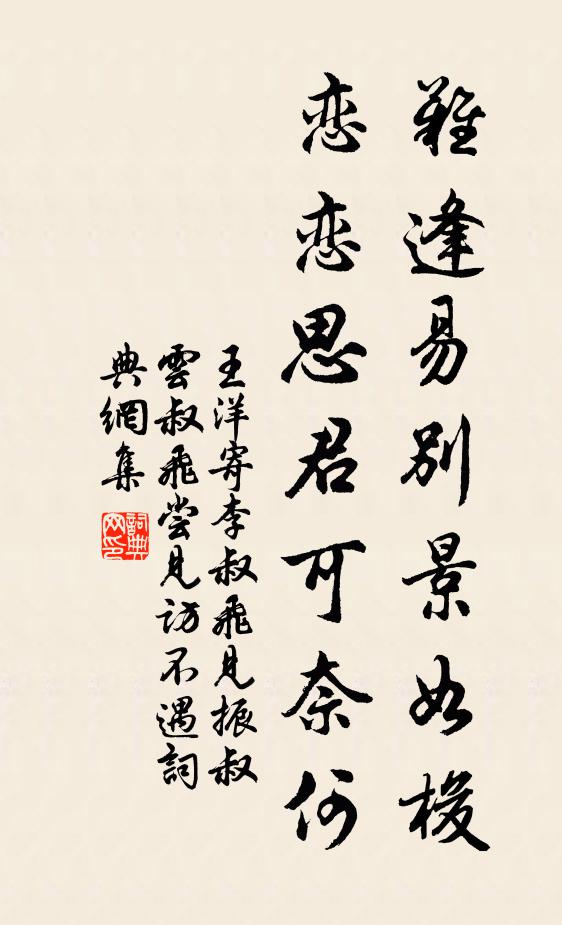 難逢易別景如梭
戀戀思君可奈何
王洋寄李叔飛見振叔
雲叔飛嘗見訪不遇詞
典網集
詞典
网印